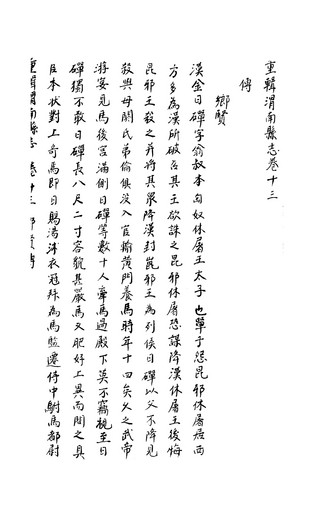 重輯渭南縣志卷十三
傳
鄉賢
漢金日磾字翁叔本匈奴休屠王太子也單于怨昆邪休屠居西
方多為漢所破召其王欲誅之昆邪休屠恐謀降漢休屠王後悔
昆邪王殺之并將其眾降漢封昆邪王為列侯日磾以父不降見
殺與母閼氏弟倫俱沒入官輸黃門養馬時年十四矣久之武帝
游宴見馬後宮滿側日磾等數十人牽馬過殿下莫不竊視至日
磾獨不敢日磾長八尺二寸容貌甚嚴馬又肥好上異而問之具
以本狀對上奇焉即日賜湯沐衣冠拜為馬監遷侍中駙馬都尉
重輯渭南縣志 卷十三 鄉賢傳